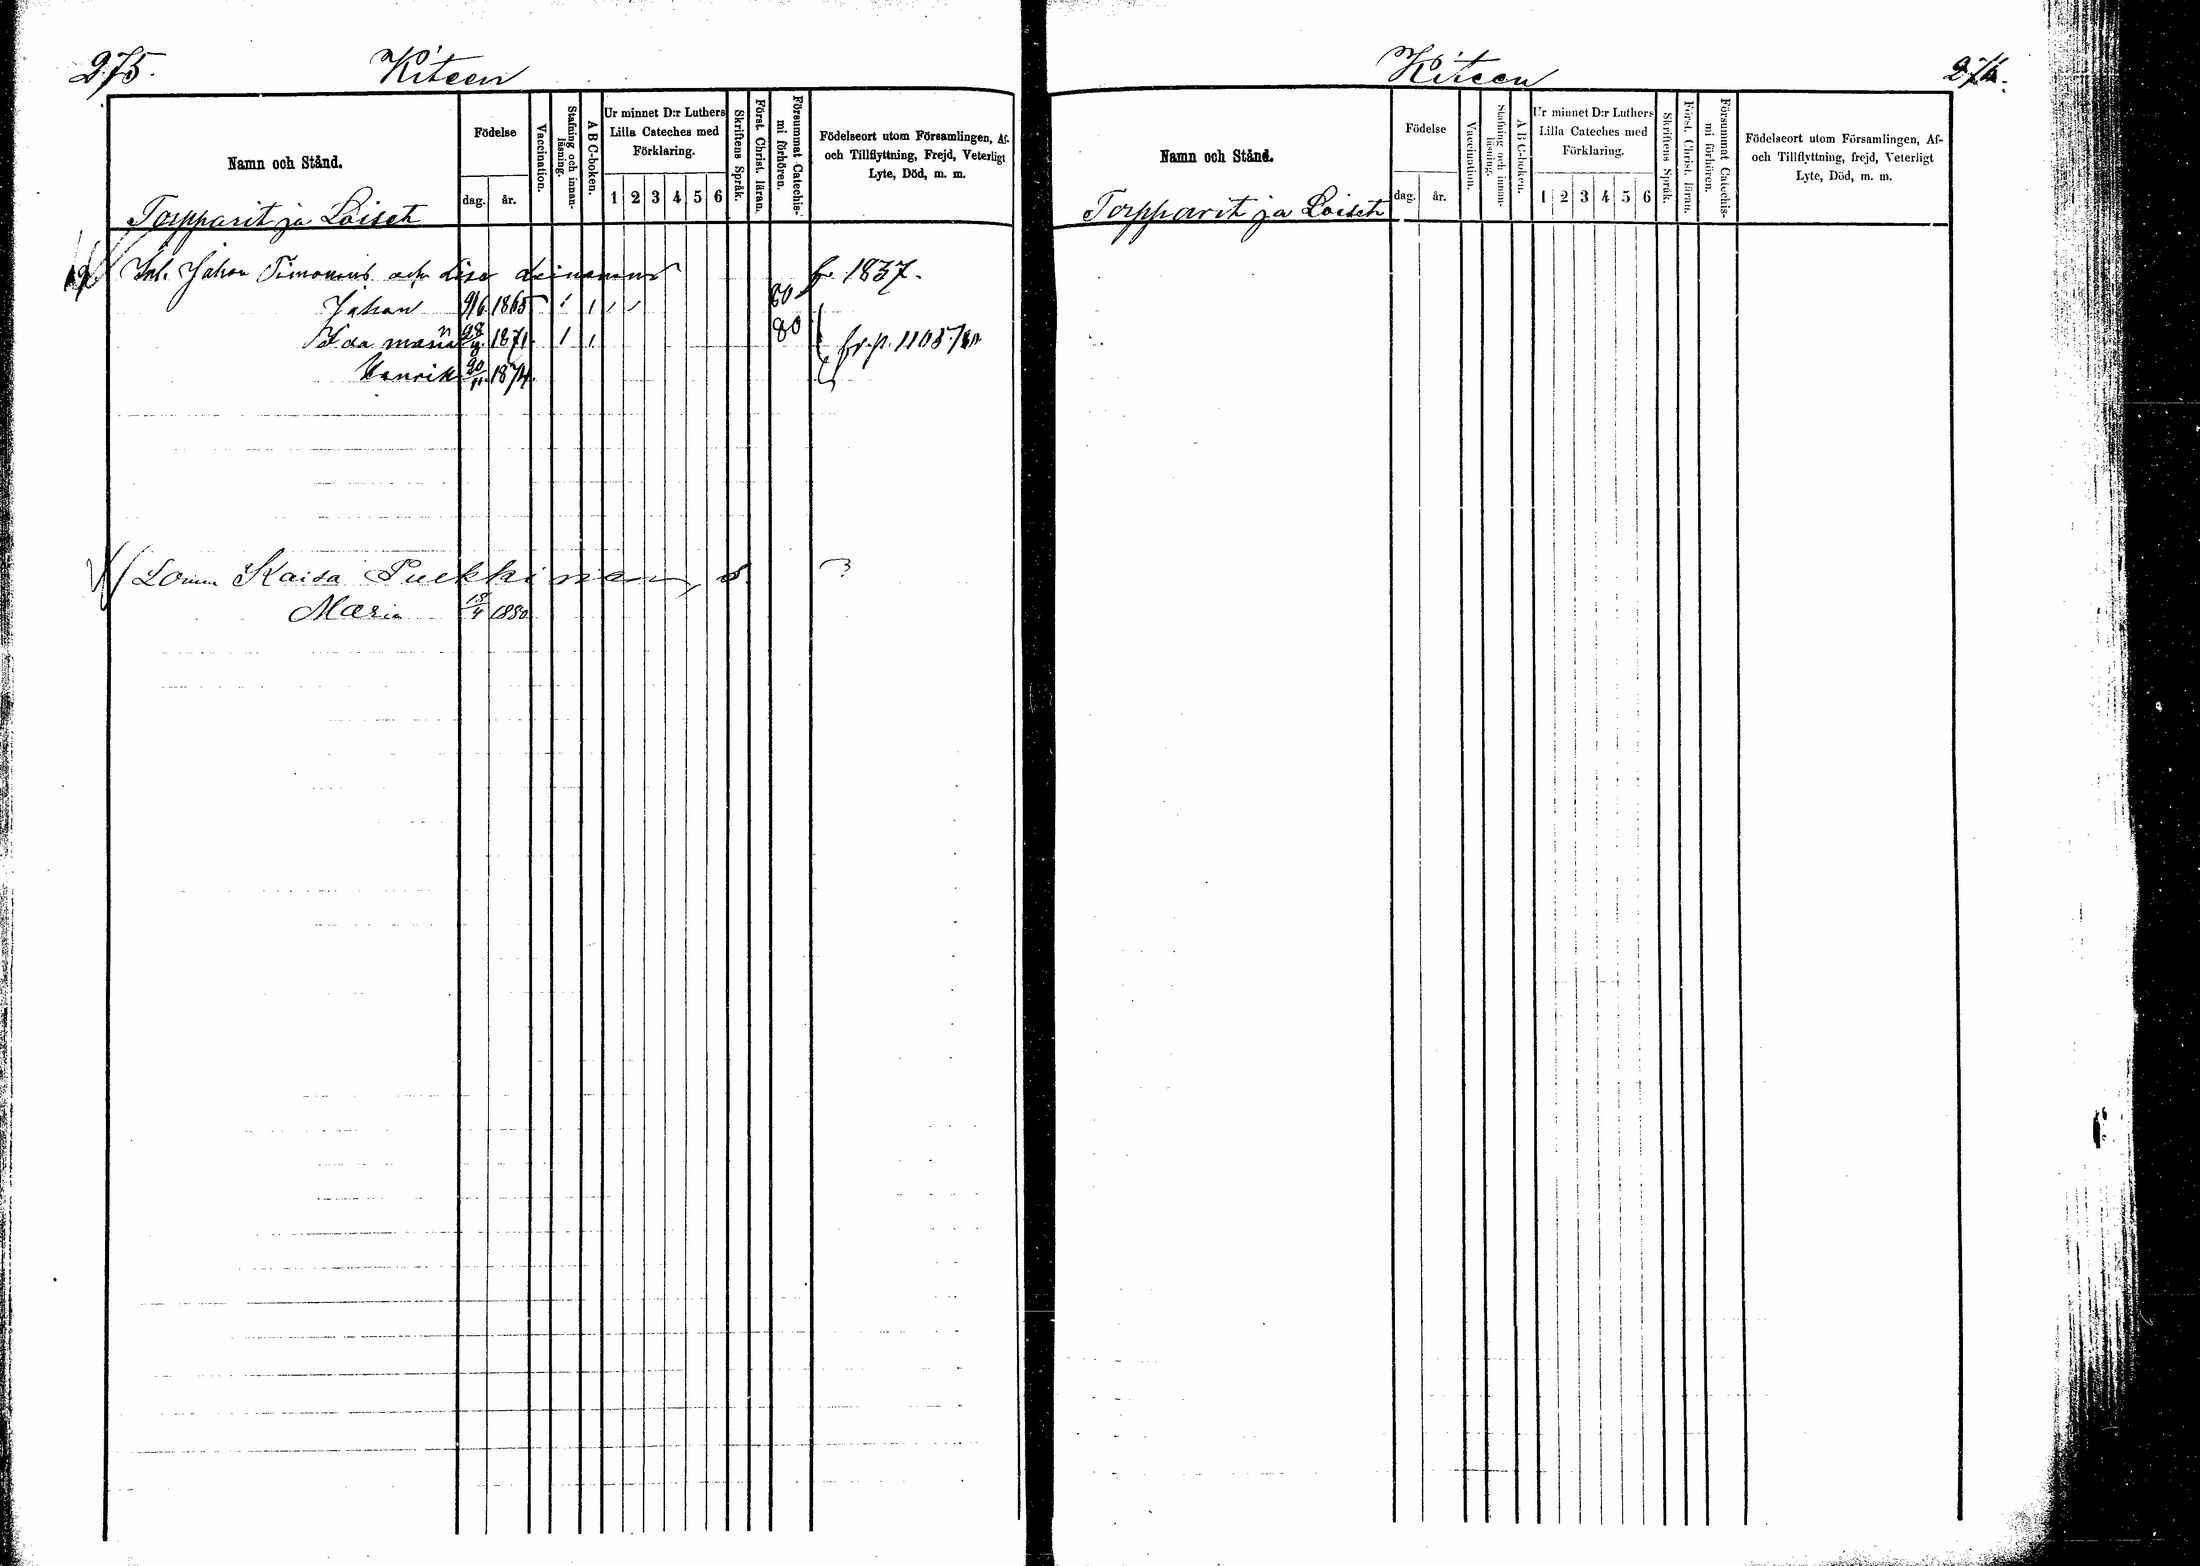 275.
Kiteen
Namn och Stånd.
Födelse
dag.
år.
Vaccination.
Stafning och innan-
läsning.
A B C-boken.
Ur minnet D:r Luthers
Lilla Cateches med
Förklaring.
1 2 3 4 5 6
Skriftens Språk.
Först. Christ. läran.
Försummat Catechis-
mi förhören.
Födelseort utom Församlingen, Af-
och Tillflyttning, Frejd, Veterligt
Lyte, Död, m. m.
Torpparit ja Loiset
Inh. Johan Timonens och Lisa Leinonens fr 1837.
Johan 9/6 1865 60
Ida maria 28 1871. 80 fr. p. 1105
Henrik 20/11 1874.
Kaisa Puckkinen, s. ?
Maria 18/4 1880
Kiteen
276.
Namn och Stånd.
Födelse
dag.
år.
Vaccination.
Stafning och innan-
läsning.
A B C-boken.
Ur minnet D:r Luthers
Lilla Cateches med
Förklaring.
1 2 3 4 5 6
Skriftens Språk.
Först. Christ. läran.
Försummat Catechis-
mi förhören.
Födelseort utom Församlingen, Af-
och Tillflyttning, frejd, Veterligt
Lyte, Död, m. m.
Torpparit ja Loiset